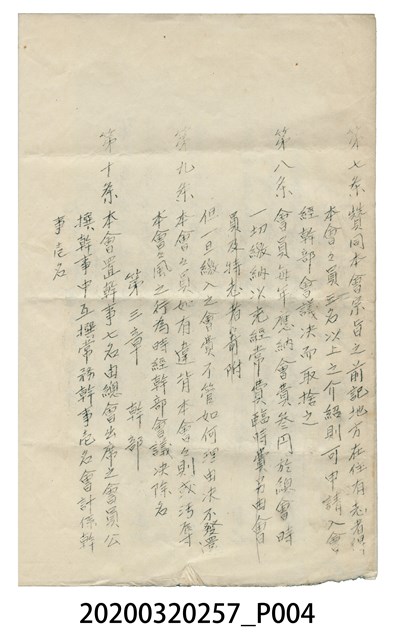 第七条 贊同本會宗旨之前記地方在住有志者
本會々員三名以上之介紹則可申請入會
經幹部會議決而取捨之
第八条 會員每年應納會費叁円於總會時
一切繳納以充經常費臨時費另由會
員及特志者寄附
但一旦繳入之會費不管如何理由決不發還
第九条 本會々員如有違背本會々則或沽辱
本會々風之行為時經幹部會議決除名
第三章 幹部
第十条 本會置幹事七名由總會出席之會員公
撰幹事中互撰常務幹事壱名會計係幹
事壱名
20200320257_P004